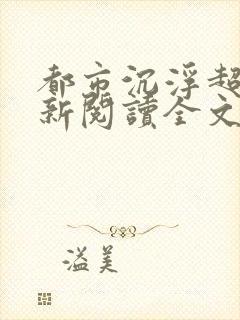 都市沉浮超
新閱讀全文
溢美